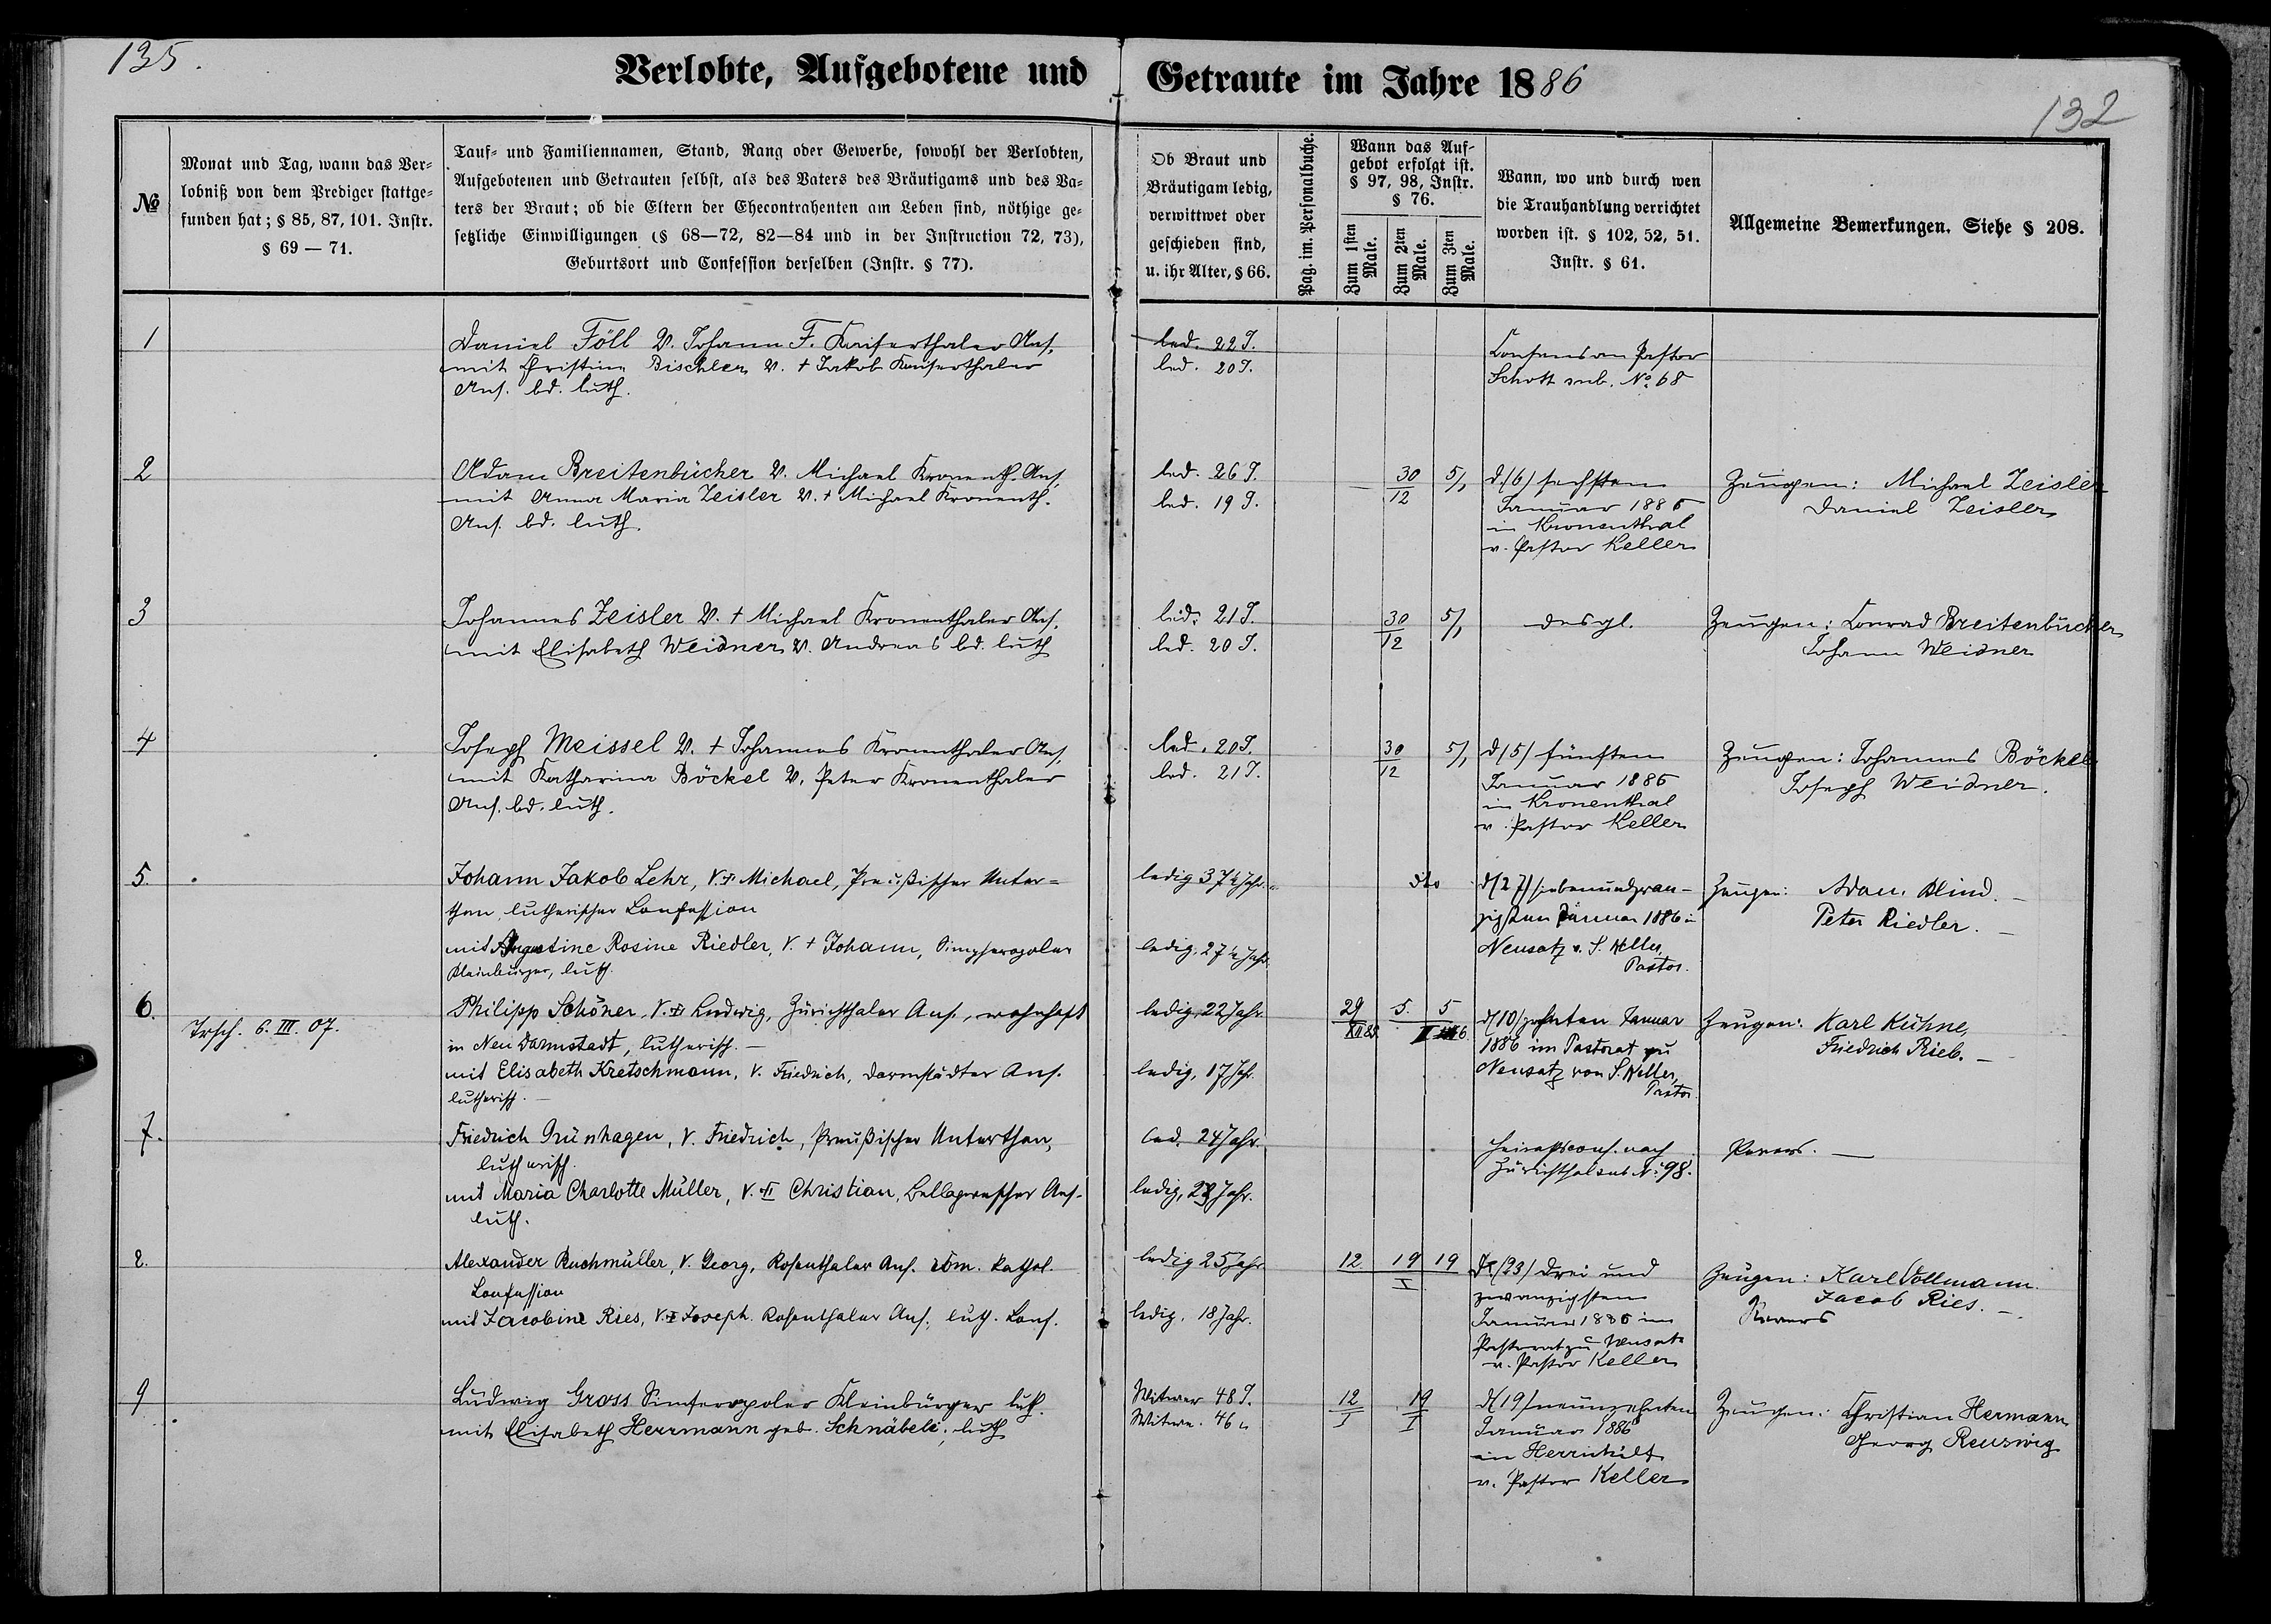 135.
132
Verlobte, Aufgebotene und Getraute im Jahre 1886
№
Monat und Tag, wann das Ver-
lobniß von dem Prediger stattge-
funden hat; § 85, 87, 101. Instr.
§ 69 — 71.
Tauf- und Familiennamen, Stand, Rang oder Gewerbe, sowohl der Verlobten,
Aufgebotenen und Getrauten selbst, als des Vaters des Bräutigams und des Va-
ters der Braut; ob die Eltern der Ehecontrahenten am Leben sind, nöthige ge-
setzliche Einwilligungen (§ 68—72, 82—84 und in der Instruction 72, 73),
Geburtsort und Confession derselben (Instr. § 77).
Ob Braut und
Bräutigam ledig,
verwittwet oder
geschieden sind,
u. ihr Alter, § 66.
Pag. im. Personalbuche.
Wann das Auf-
gebot erfolgt ist.
§ 97, 98, Instr.
§ 76.
Zum 1sten
Male.
Zum 2ten
Male.
Zum 3ten
Male.
Wann, wo und durch wen
die Trauhandlung verrichtet
worden ist. § 102, 52, 51.
Instr. § 61.
Allgemeine Bemerkungen. Siehe § 208.
1
Daniel Föll V. Johann F. Kaiserthaler Ans.
mit Christine Bischler V. + Jakob Kaiserthaler
Ans. bd. luth.
led. 22 J.
led. 20 J.
Consens an Pastor
Schott sub. No. 68
2
Adam Breitenbücher V. Michael Kronenth. Ans.
mit Anna Maria Zeisler V. + Michael Kronenth.
Ans. bd. luth.
led. 26 J.
led. 19 J.
30
12
5/1
d (6) sechsten
Januar 1886
in Kronenthal
v. Pastor Keller
Zeugen: Michael Zeisler
Daniel Zeisler
3
Johannes Zeisler V. + Michael Kronenthaler Ans.
mit Elisabeth Weidner V. Andreas bd. luth
led. 21 J.
led. 20 J.
30
12
5/1
desgl.
Zeugen: Conrad Breitenbücher
Johann Weidner
4
Joseph Meissel V. + Johannes Kronenthaler Ans.
mit Katharina Böckel V. Peter Kronenthaler
Ans. bd. luth.
led. 20 J.
led. 21 J.
30
12
5/1
d (5) fünften
Januar 1886
in Kronenthal
v. Pastor Keller
Zeugen: Johannes Böckel
Joseph Weidner.
5.
Johann Jakob Lehr, V. + Michael, Preußischer Unter-
than, lutherischer Confession
mit Augustine Rosine Riedler, V. + Johann, Simpheropoler
Kleinbürger, luth.
ledig 37½ Jahr.
ledig, 27½ Jahr.
dto
d (27) siebenundzwan-
zigsten Januar 1886 in
Neusatz v. S. Keller,
Pastor.
Zeugen: Adam Blind. —
Peter Riedler. —
6.
Trsch. 6. III. 07.
Philipp Schöner, V. Ludwig, Zürichthaler Ans., wohnhaft
in Neu Darmstadt, lutherisch. —
mit Elisabeth Kretschmann, V. Friedrich, Darmstädter Ans.
lutherisch. —
ledig, 22 Jahr
ledig, 17 Jahr.
29
XII 85
5.
5
d (10) zehnten Januar
1886 im Pastorat zu
Neusatz von S. Keller,
Pastor.
Zeugen: Karl Kühne,
Friedrich Rieb. —
7.
Friedrich Grünhagen, V. Friedrich, Preußischer Unterthan,
lutherisch.
mit Maria Charlotte Müller, V. Christian, Ans.
luth.
led. 24 Jahr.
ledig, Jahr.
Heirathsconf. nach
Zürichthal sub N: 98.
Revers. —
8.
Alexander Buchmüller, V. Georg, Rosenthaler Ans. röm. kathol.
Confession
mit Jacobine Ries, V. Joseph. Rosenthaler Ans., luth. Conf.
ledig 25 Jahr
ledig, 18 Jahr.
12
19
I
19
(23) drei und
zwanzigsten
Januar 1886 im
Pastorat zu Neusatz
v. Pastor Keller
Zeugen: Karl Vollmann.
Jacob Ries. —
Revers
9
Ludwig Gross Simferopoler Kleinbürger luth.
mit Elisabeth Herrmann geb. Schnäbele, luth
Witwer 48 J.
Witwe. 46 "
12
I
19
I
d (19) neunzehnten
Januar 1886
in
v. Pastor Keller
Zeugen: Christian Hermann
Georg Reuswig